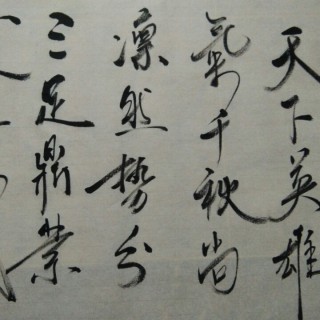 天下英雄
氣千秋尚
凛然勢分
三足鼎業